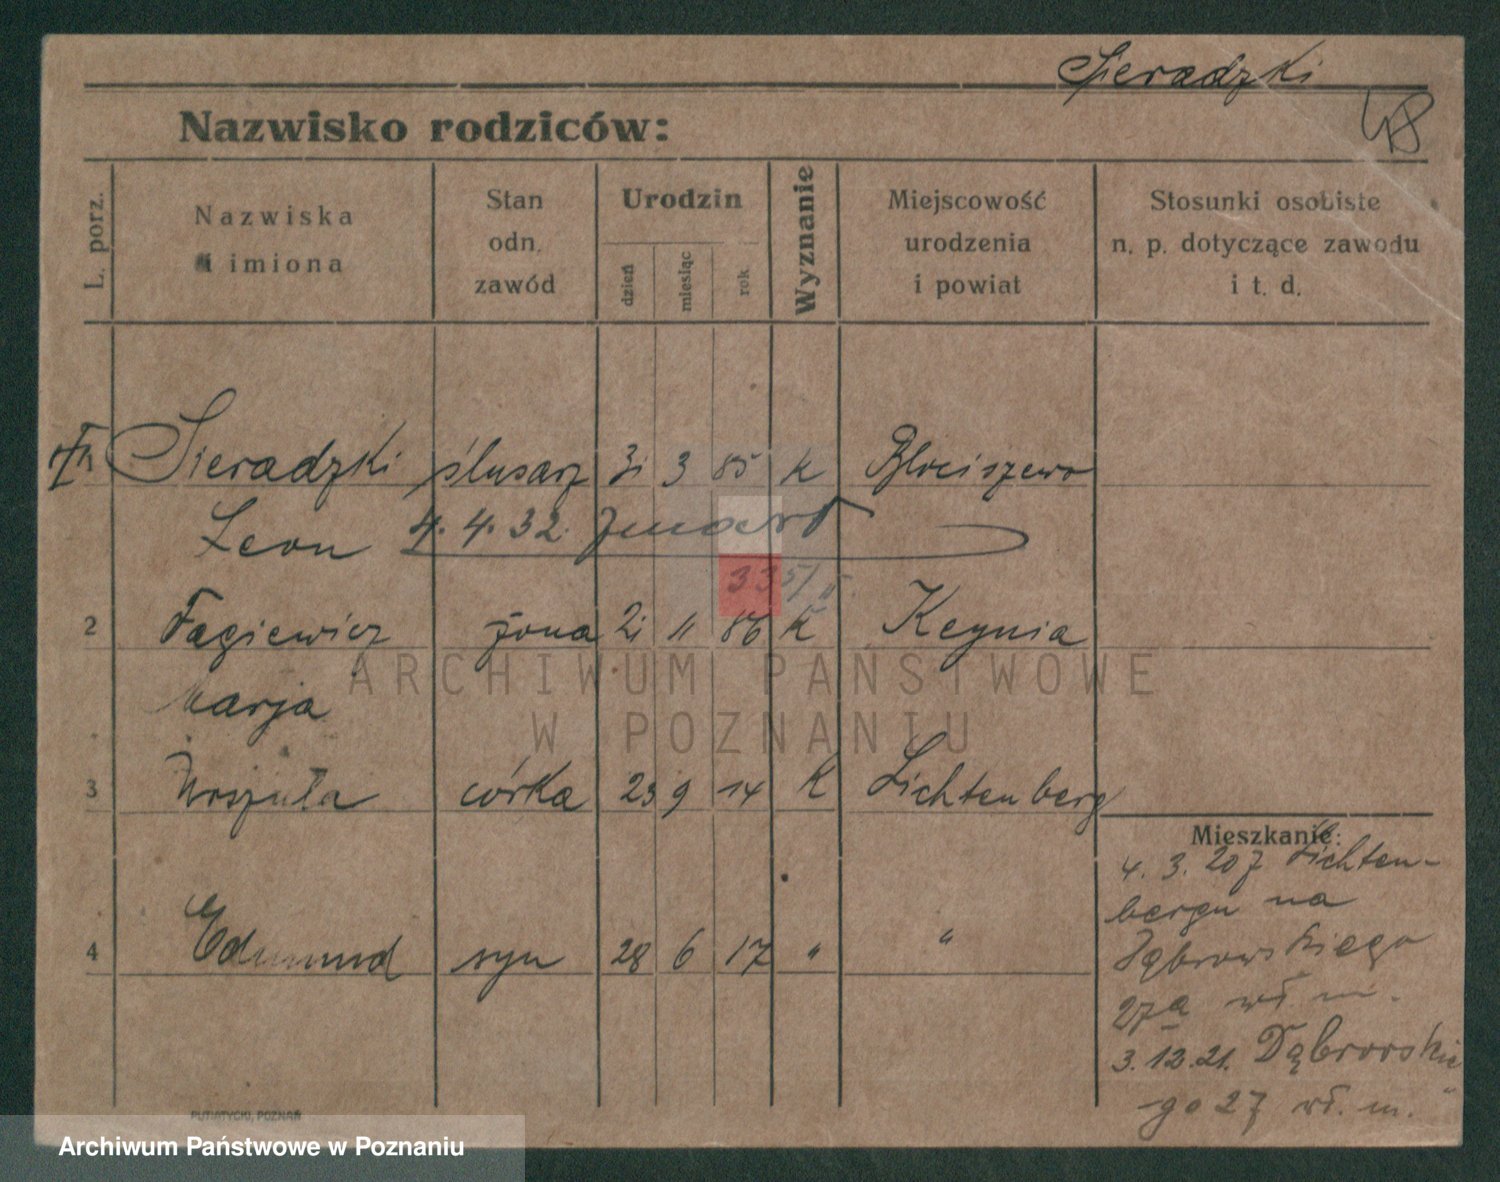 Sieradzki
Nazwisko rodziców:
48
L. porz.
Nazwiska
i imiona
Stan
odn.
zawód
Urodzin
dzień
miesiąc
rok
Wyznanie
Miejscowość
urodzenia
i powiat
Stosunki osobiste
n. p. dotyczące zawodu
i t. d.
1 Sieradzki ślusarz 31 3 85 k Błociszewo
Leon 4. 4. 32. zmarł
335/
2 Fagiewicz żona 21 11 86 k Keynia
Marja
ARCHIWUM PAŃSTWOWE
W POZNANIU
3 Urszula córka 23 9 14 k Lichtenberg
4 Edmund syn 28 6 17 " "
Mieszkanie:
4. 3. 20 z Lichten-
bergu na
Dąbrowskiego
27a wł. m.
3.12.21. Dąbrowskie
-go 27 wł. m.
PUTIATYCKI, POZNAŃ
Archiwum Państwowe w Poznaniu